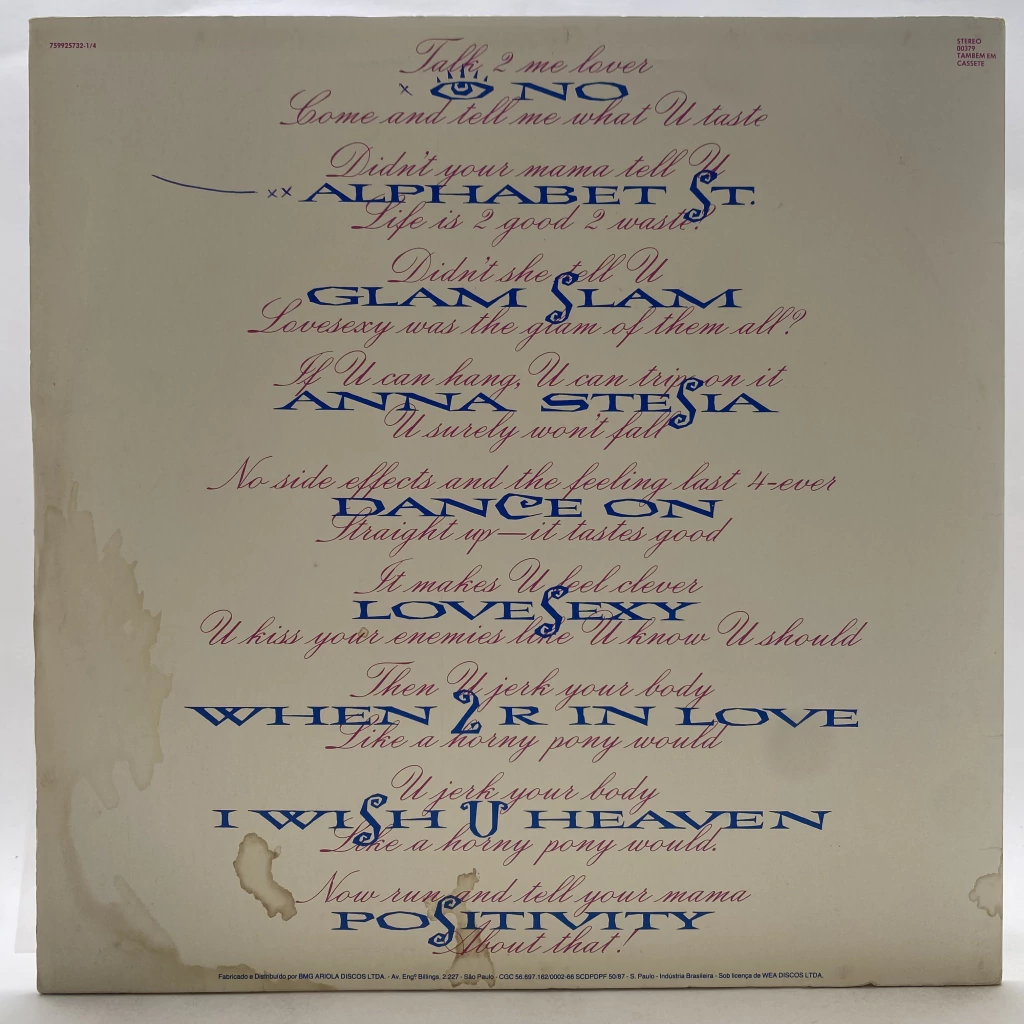 759925732-1/4
STEREO
00379
TAMBEM EM
CASSETE
Talk 2 me lover
x 👁 NO
Come and tell me what U taste
Didn't your mama tell U
xx ALPHABET ST.
Life is 2 good 2 waste?
Didn't she tell U
GLAM SLAM
Lovesexy was the glam of them all?
If U can hang, U can trip on it
ANNA STESIA
U surely won't fall
No side effects and the feeling last 4-ever
DANCE ON
Straight up—it tastes good
It makes U feel clever
LOVESEXY
U kiss your enemies like U know U should
Then U jerk your body
WHEN 2 R IN LOVE
Like a horny pony would
U jerk your body
I WISH U HEAVEN
Like a horny pony would.
Now run and tell your mama
POSITIVITY
About that!
Fabricado e Distribuído por BMG ARIOLA DISCOS LTDA. - Av. Engº Billings, 2.227 - São Paulo - CGC 56.697.162/0002-66 SCDPDPF 50/87 - S. Paulo - Indústria Brasileira - Sob licença de WEA DISCOS LTDA.